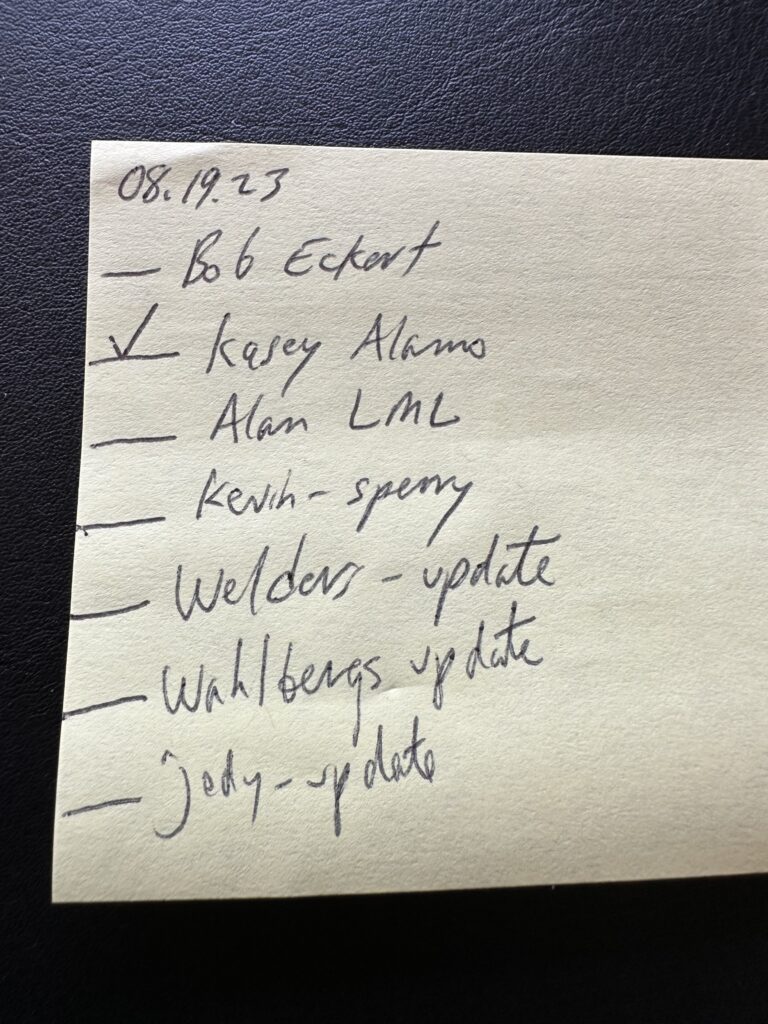 08.19.23
_ Bob Eckert
✓ Kasey Alamo
_ Alan LML
_ Kevin - sperry
_ Welders - update
_ Wahlbergs update
_ Jedy - update